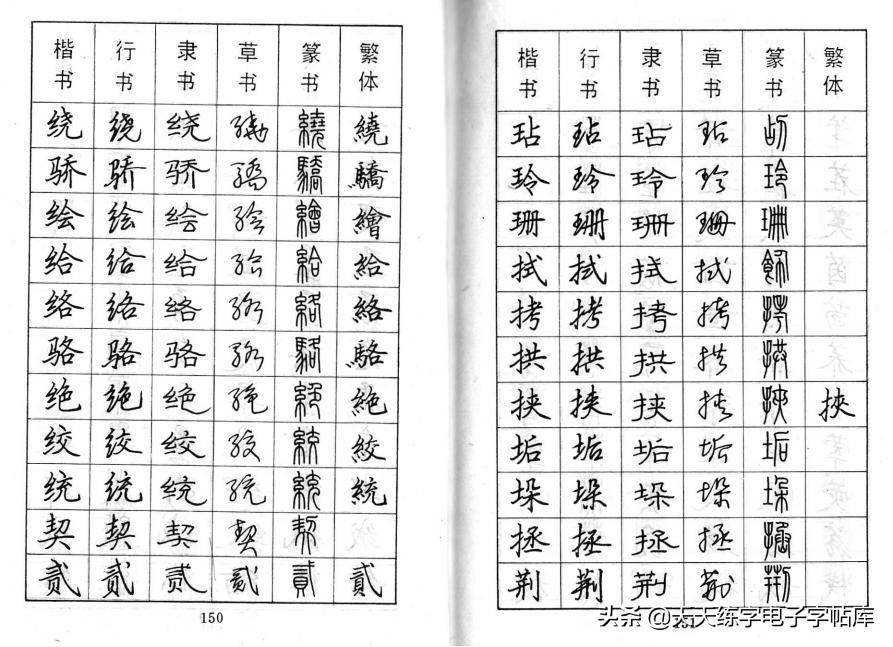 楷书 行书 隶书 草书 篆书 繁体
绕 绕 绕 绕 繞 繞
骄 骄 骄 骄 驕 驕
绘 绘 绘 绘 繪 繪
给 给 给 给 給 給
络 络 络 络 絡 絡
骆 骆 骆 骆 駱 駱
绝 绝 绝 绝 絕 絶
绞 绞 绞 绞 絞 絞
统 统 统 统 統 統
契 契 契 契 契
贰 贰 贰 贰 貳 貳
150
楷书 行书 隶书 草书 篆书 繁体
玷 玷 玷 玷
玲 玲 玲 玲 玲
珊 珊 珊 珊 珊
拭 拭 拭 拭 飾
拷 拷 拷 拷 拷
拱 拱 拱 拱 拱
挟 挟 挟 挟 挾 挾
垢 垢 垢 垢 垢
垛 垛 垛 垛 垛
拯 拯 拯 拯
荆 荆 荆 荆 荆
151
头条 @天天练字电子字帖库